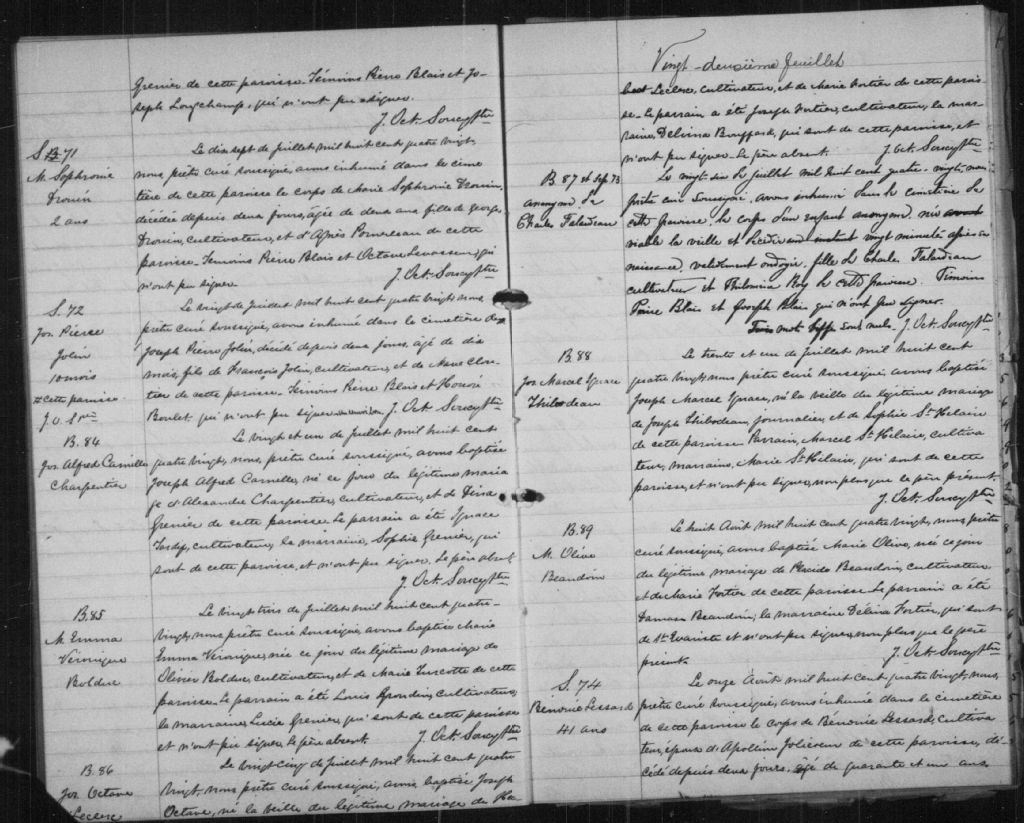 Grenier de cette paroisse. Témoins Pierre Blais et Jo-
seph Longchamp, qui n'ont pu signer.
J. Oct. Soucy Ptre
S. 71
M. Sophronie
Drouin
2 ans
Le dix sept de Juillet, mil huit cent quatre vingt,
nous prêtre curé soussigné, avons inhumé dans le cime
tière de cette paroisse le corps de Marie Sophronie Drouin,
décédée depuis deux jours, âgée de deux ans fille de Georges
Drouin, cultivateur, et d'Agnès Pomerleau de cette
paroisse. Témoins Pierre Blais et Octave Levasseur, qui
n'ont pu signer. J. Oct. Soucy Ptre
S. 72
Jos. Pierre
Jolin
10 mois
# cette paroisse
J. O. S. Ptre
Le vingt de Juillet mil huit cent quatre vingt, nous
prêtre curé soussigné, avons inhumé dans le cimetière de #
Joseph Pierre Jolin, décédé depuis deux jours, âgé de dix
mois, fils de François Jolin, cultivateur, et de Marie Clou-
tier de cette paroisse. Témoins Pierre Blais et Honoré
Boulet qui n'ont pu signer. J. Oct. Soucy Ptre
B. 84
Jos. Alfred Camille
Charpentier
Le vingt et un de Juillet mil huit cent
quatre vingt, nous, prêtre curé soussigné, avons baptisé
Joseph Alfred Camille, né ce jour du légitime maria
ge d'Alexandre Charpentier, cultivateur, et de Dina
Grenier de cette paroisse. Le parrain a été Ignace
Tardif, cultivateur, la marraine, Sophie Grenier, qui
sont de cette paroisse, et n'ont pu signer. Le père absent.
J. Oct. Soucy Ptre
B. 85
M. Emma
Véronique
Bolduc
Le vingt trois de Juillet mil huit cent quatre-
vingt, nous prêtre curé soussigné, avons baptisé Marie
Emma Véronique, née ce jour du légitime mariage de
Olivier Bolduc, cultivateur, et de Marie Turcotte de cette
paroisse. Le parrain a été Louis Grondin, cultivateur,
la marraine, Lucie Grenier, qui sont de cette paroisse
et n'ont pu signer, le père absent. J. Oct. Soucy Ptre
B. 86
Jos. Octave
Leclerc
Le vingt cinq de Juillet mil huit cent quatre
vingt, nous prêtre curé soussigné, avons baptisé Joseph
Octave, né la veille du légitime mariage de
Vingt-deuxième feuillet
Leclerc, cultivateur, et de Marie Fortier de cette parois-
se. Le parrain a été Joseph Fortier, cultivateur, la mar-
raine, Delvina Bouffard, qui sont de cette paroisse, et
n'ont pu signer. Le père absent. J. Oct. Soucy Ptre
B. 87 et Sep. 73
anonyme de
Charles Talardeau
Le vingt-six de Juillet mil huit cent quatre-vingt, nous
prêtre curé soussigné, avons inhumé dans le cimetière de
cette paroisse, le corps d'un enfant anonyme, née
la veille et décédée vingt minutes après sa
naissance, validement ondoyée, fille de Charles Talardeau
cultivateur et Philomène Roy de cette paroisse. Témoins
Pierre Blais et Joseph Blais qui n'ont pu signer.
Trois mots biffés sont nuls. J. Oct. Soucy Ptre
B. 88
Jos Marcel Ignace
Thibodeau
Le trente et un de Juillet mil huit cent
quatre vingt, nous prêtre curé soussigné, avons baptisé
Joseph Marcel Ignace, né la veille du légitime mariage
de Joseph Thibodeau, journalier, et de Sophie St Hilaire
de cette paroisse. Parrain, Marcel St Hilaire, cultiva
teur, marraine, Marie St Hilaire, qui sont de cette
paroisse, et n'ont pu signer, non plus que le père présent.
J. Oct. Soucy Ptre
B. 89
M. Olive
Beaudoin
Le huit Août mil huit cent quatre vingt, nous prêtre
curé soussigné, avons baptisé Marie Olive, née ce jour
du légitime mariage de Placide Beaudoin, cultivateur
et de Marie Fortier de cette paroisse. Le parrain a été
Damase Beaudoin, la marraine Delina Fortier, qui sont
de St. Evariste et n'ont pu signer, non plus que le père
présent. J. Oct. Soucy Ptre
S. 74
Bénonie Lessard
41 ans
Le onze Août mil huit cent quatre vingt, nous,
prêtre curé soussigné, avons inhumé dans le cimetière
de cette paroisse le corps de Bénonie Lessard, cultiva
teur, époux d'Apolline Jolicoeur de cette paroisse, dé-
cédé depuis deux jours, âgé de quarante et un ans